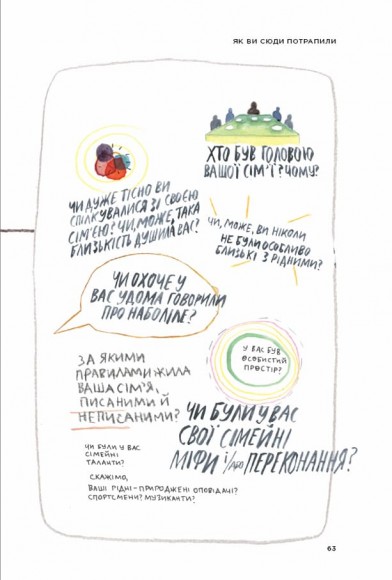 ЯК ВИ СЮДИ ПОТРАПИЛИ
ХТО БУВ ГОЛОВОЮ
ВАШОЇ СІМ'Ї? ЧОМУ?
ЧИ ДУЖЕ ТІСНО ВИ
СПІЛКУВАЛИСЯ ЗІ СВОЄЮ
СІМ'ЄЮ? ЧИ, МОЖЕ, ТАКА
БЛИЗЬКІСТЬ ДУШИЛА ВАС?
ЧИ, МОЖЕ, ВИ НІКОЛИ
НЕ БУЛИ ОСОБЛИВО
БЛИЗЬКІ З РІДНИМИ?
ЧИ ОХОЧЕ У
ВАС УДОМА ГОВОРИЛИ
ПРО НАБОЛІЛЕ?
У ВАС БУВ
ОСОБИСТИЙ
ПРОСТІР?
ЗА ЯКИМИ
ПРАВИЛАМИ ЖИЛА
ВАША СІМ'Я,
ПИСАНИМИ Й
НЕПИСАНИМИ?
ЧИ БУЛИ У ВАС
СВОЇ СІМЕЙНІ
МІФИ і/або ПЕРЕКОНАННЯ?
ЧИ БУЛИ У ВАС
СІМЕЙНІ
ТАЛАНТИ?
СКАЖІМО,
ВАШІ РІДНІ – ПРИРОДЖЕНІ ОПОВІДАЧІ?
СПОРТСМЕНИ? МУЗИКАНТИ?
63